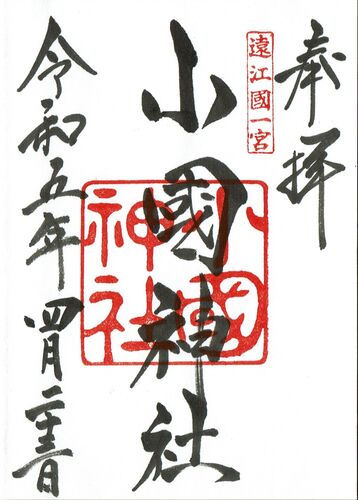 奉拝
遠江國一宮
小國神社
小國神社
令和五年四月二十三日